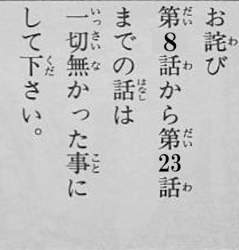 お詫び
第8話から第23話
までの話は
一切無かった事に
して下さい。